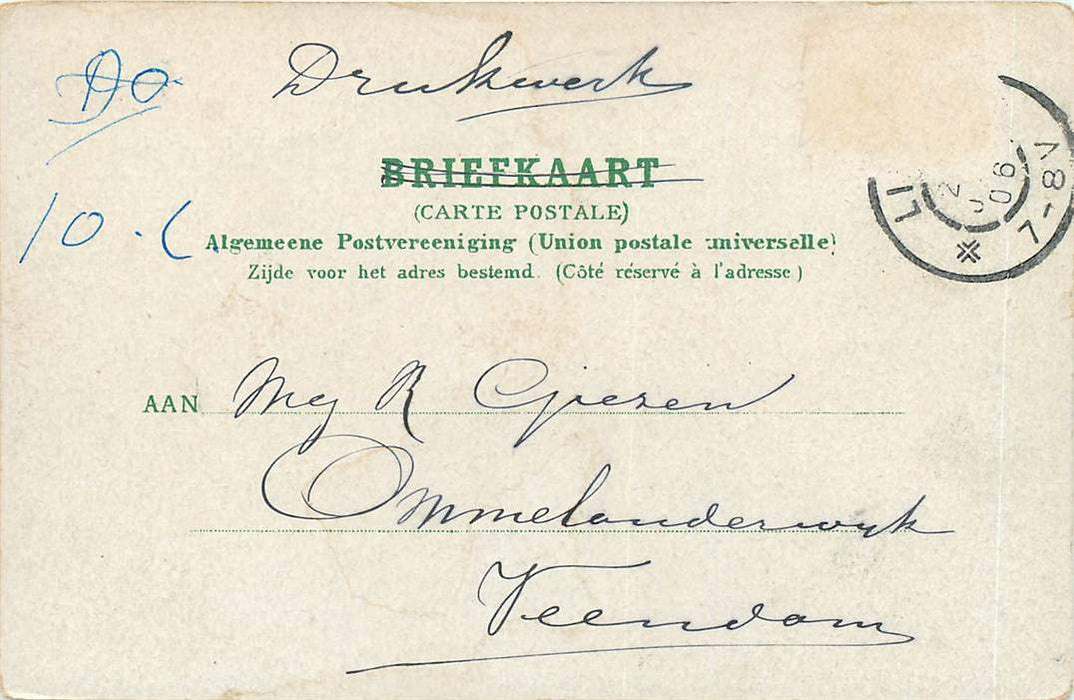 Do Drukwerk
BRIEFKAART
(CARTE POSTALE)
10 . (.
Algemeene Postvereeniging (Union postale universelle)
Zijde voor het adres bestemd. (Côté réservé à l'adresse)
06
7-8V
AAN Mej R Giezen
Ommelanderwyk
Veendam